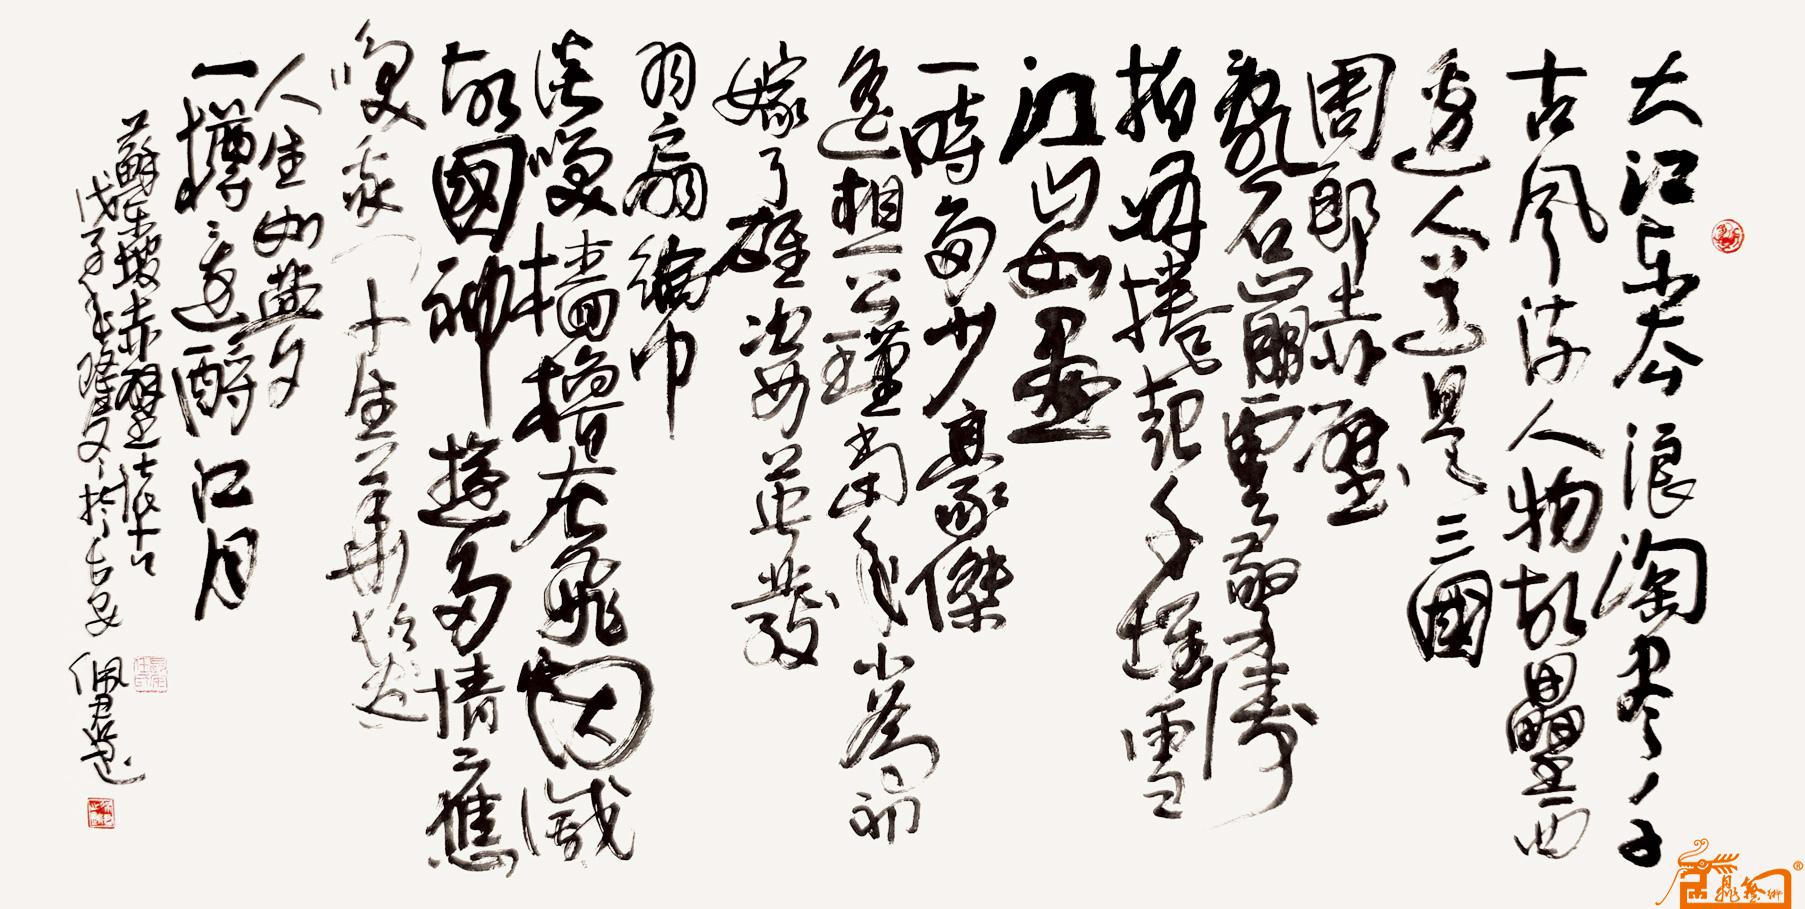 大江东去浪淘尽千
古风流人物故垒西
边人道是三國
周郎赤壁
亂石崩雲驚濤
拍岸捲起千堆雪
江山如畫
一時多少豪傑
遙想公瑾當年小喬初
嫁了雄姿英發
羽扇綸巾
談笑檣櫓灰飛烟滅
故國神遊多情應
笑我早生華髮
人生如夢
一樽還酹江月
蘇東坡赤壁懷古
戊子年
佩君